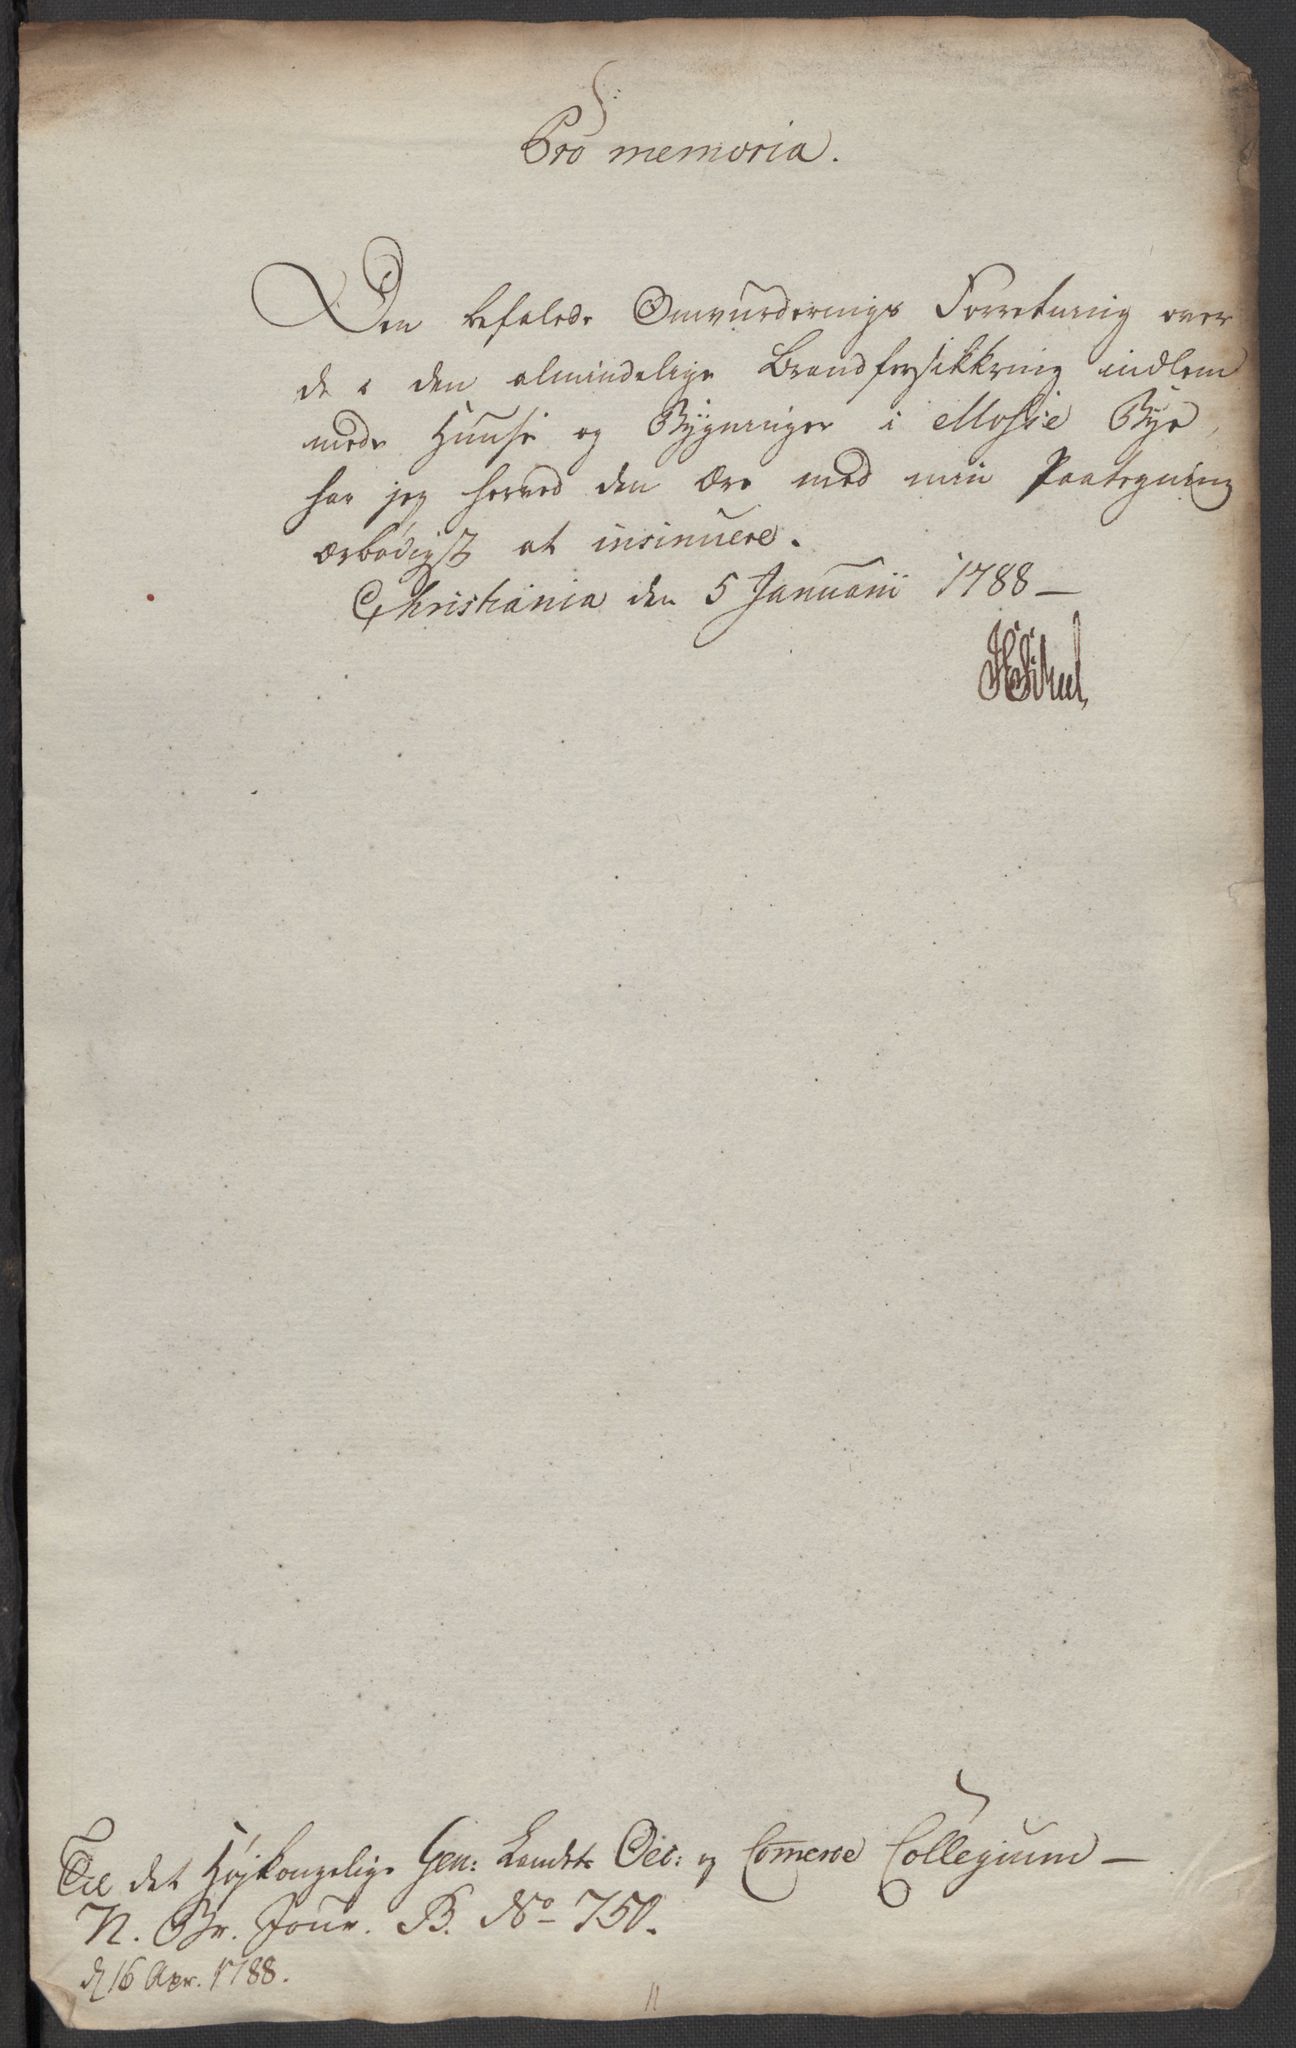 Pro memoria.
Den befalede Omvurderings Forretning over
de i den almindelige Brandforsikkring indlem
mede Huuse og Bygninger i Mosse Bye,
har jeg herved den Ære med min Paategning
ærbødigst at insinuere.
Christiania den 5 Januarii 1788 —
Til det Højkongelige Gen: Landets Oec: og Comerce Collegium —
N. Br. Jour. B. No 750.
d 16 Apr. 1788.
11